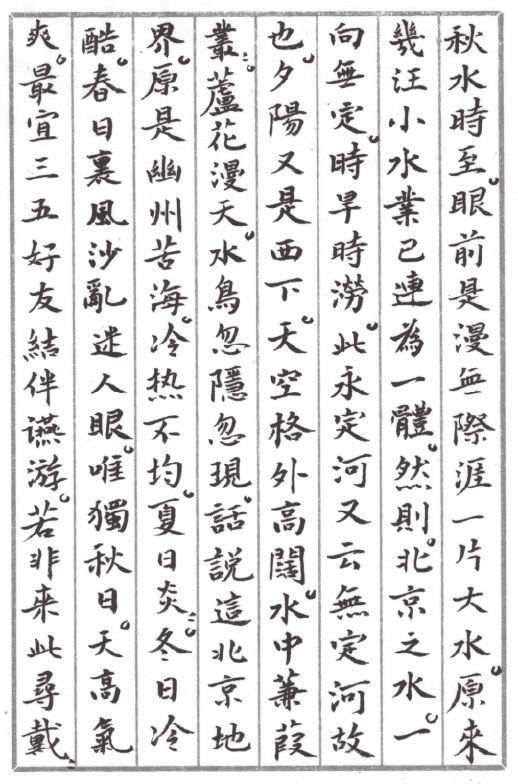 秋水時至。眼前是漫無際涯一片大水。原來
幾汪小水業已連為一體。然則。北京之水。一
向無定。時旱時澇。此永定河又云無定河故
也。夕陽又是西下。天空格外高闊。水中蒹葭
叢〻。蘆花漫天。水鳥忽隱忽現。話說這北京地
界。原是幽州苦海。冷热不均。夏日炎〻。冬日冷
酷。春日裏風沙亂迷人眼。唯獨秋日。天高氣
爽。最宜三五好友結伴讌游。若非来此尋戴